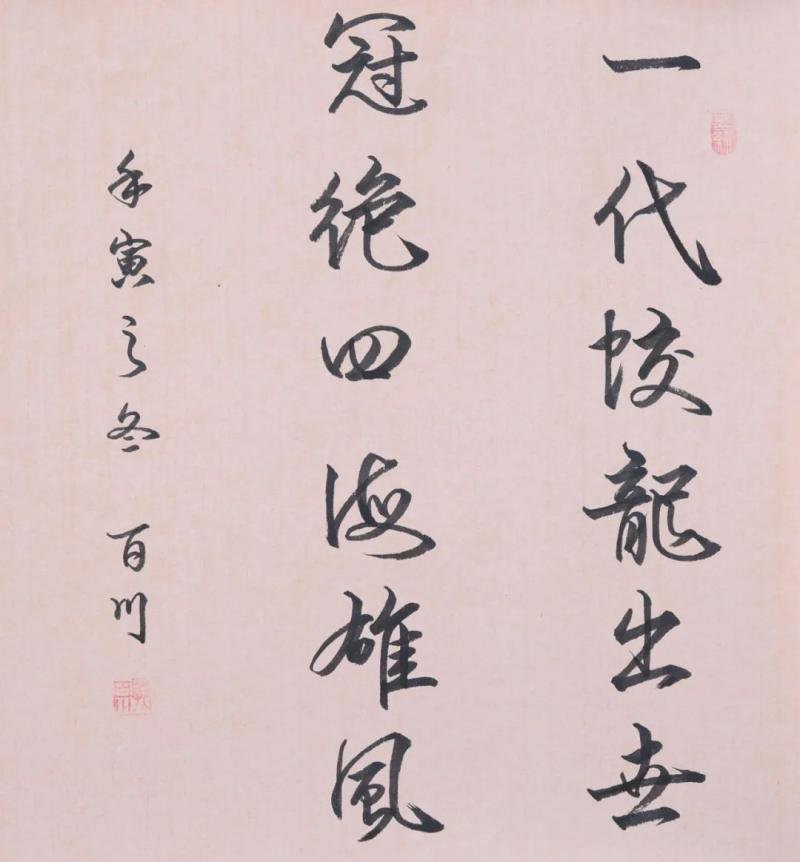 一代蛟龍出世
冠絶四海雄風
壬寅之冬 百川